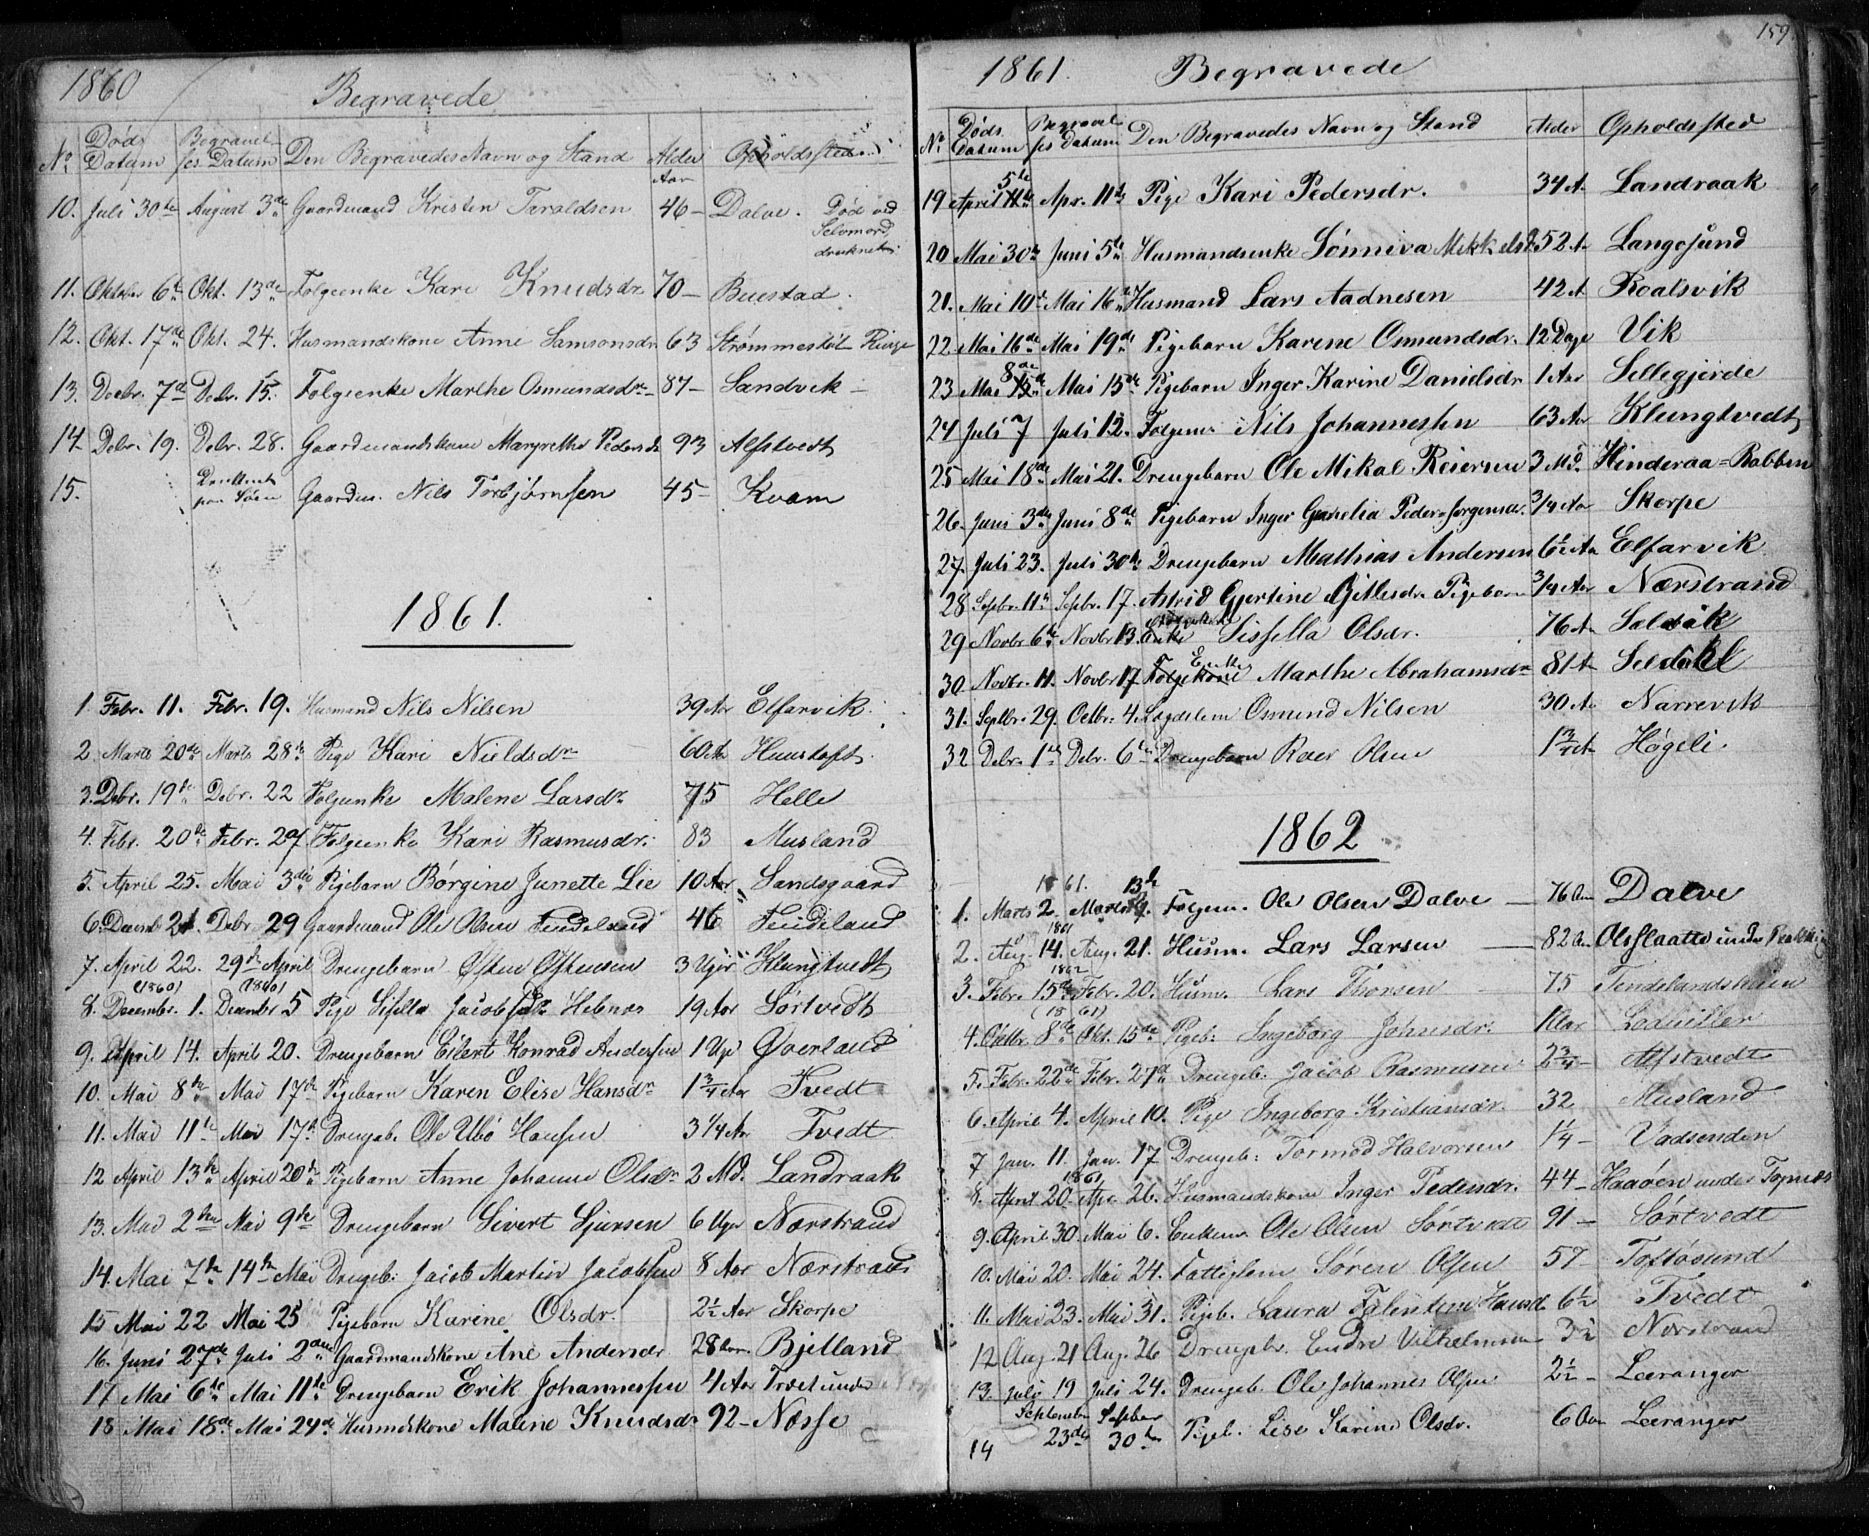 1860 Begravede
No Død Datum Begravelses Datum Den Begravedes Navn og Stand Alder Aar Opholdssted
10. Juli 30te August 3de Gaardmand Kristen Taraldsen 46 – Dalve. Død ved
Selvmord,
druknet
11. Oktober 6te Okt. 13de Folgeenke Kari Knudsdr 70 – Buestad.
12. Okt. 17de Okt. 24. Husmandskone Anne Samsonsdr 63 Strømmestøl
13. Decbr. 7de Debr. 15. Folgeenke Marthe Osmundsdr – 87 – Sandvik –
14 Debr. 19. Debr. 28. Gaardmandskone Margrethe Pedersdr 93 Alfstvedt
15. Druknet paa Søen Gaardm. Nils Torbjørnsen 45 – Kvam
1861.
1 Febr. 11. Febr. 19. Husmand Nils Nilsen 39 Aar Elfarvik.
2 Marts 20de Marts 28de Pige Kari Nieldsdr 60 Aar Huustoft.
3. Debr. 19de Debr. 22 Folgeenke Malene Larsdr 75 Helle
4. Febr. 20de Febr. 27 Folgeenke Kari Rasmusdr. 83 Musland
5. April 25. Mai 3die Pigebarn Børgine Junette Lie 10 Aar Sandsgaard
6. Decemb 21. Debr 29 Gaardmand Ole Olsen Tendeland 46 Tendeland
7. April 22. 29de April Drengebarn Østen Østensen 3 Uger Klungtvedt
8. (1860) December. 1. (1860) December 5 Pige Sisella Jacobsdr Hebnes 19 Aar Sørtvedt
9. April 14. April 20. Drengebarn Eilert Konrad Andersen 1 Uge Øverland
10. Mai 8de Mai 17de Pigebarn Karen Elise Hansdr 1 3/4 Aar Tvedt
11. Mai 11te Mai 17de Drengeb. Ole Ubø Hansen 3 1/4 Aar Tvedt
12 April 13de April 20de Pigebarn Anne Johanne Olsdr 2 Md. Landraak
13. Mai 2den Mai 9de Drengebarn Sivert Sjursen 6 Uger Nærstrand
14. Mai 7de 14de Mai Drengeb: Jacob Martin Jacobsen 8 Aar Nærstrand
15 Mai 22 Mai 25 Pigebarn Karine Olsdr. 2 1/2 Aar Skorpe
16. Juni 27de Juli 2den Gaardmandskone Ane Andersdr 28 Aar. Bjelland
17 Mai 6te Mai 11te Drengebarn Erik Johannessen 4 Aar Træet under
18 Mai 18de Mai 24de Husmdskone Malene Knudsdr 92 – Næsse
159.
1861. Begravede
No Døds Datum Begravelses Datum Den Begravedes Navn og Stand Alder Opholdssted
19 April 5te Apr. 11te Pige Kari Pedersdr. 34 A. Landraak
20 Mai 30te Juni 5te Husmandsenke Sønniva Mikkelsdr 52 A Langesund
21. Mai 10de Mai 16de Husmand Lars Aadnesen 42 A. Roalsvik
22. Mai 16de Mai 19de Pigebarn Karene Osmundsdr. 12 Dage Vik
23 Mai 8de Mai 15de Pigebarn Inger Karine Danielsdr 1 Aar Sellegjerde
24 Juli 7 Juli 12. Folgem. Nils Johannessen 63 Aar Klungtvedt
25 Mai 18de Mai 21. Drengebarn Ole Mikal Reiersen 3 Md. Hinderaa-Rabben
26. Juni 3de Juni 8de Pigebarn Inger Gurelia Peder-Jørgensdr. 3/4 Aar Skorpe
27. Juli 23. Juli 30te Drengebarn Mathias Andersen 6 1/2 Aar Elfarvik
28 Sepbr. 11te Sepbr. 17. Astrid Gjertine Gitlesdr Pigebarn 3/4 Aar Nærstrand
29 Novbr 6te Novbr 13. Enke Sissella Olsdr. 76 A. Salvaak
30 Novbr. 11. Novbr 17 Folgekone Enke Marthe Abrahamsdr 81 A
31. Septbr. 29. Octbr. 4. Lægdslem Osmund Nilsen 30 A. Narrevik
32 Debr. 1ste Debr. 6te Drengebarn Roer Olsen 1 3/4 A Høgeli.
1862
1. Marts 2. 1861. Marts 13de Folgem. Ole Olsen Dalve – 76 Aar Dalve
2. Aug. 14. 1861 Aug. 21. Husm. Lars Larsen – 82 Aar Olsflaatte under
3. Febr. 15de 1862 Febr. 20. Husm. Lars Thorsen – 75 Tendelandshaien
4. Octbr. 8de (1861) Okt. 15de Pigeb: Ingeborg Johnsdr. 1 Aar
5. Febr. 22de Febr. 27de Drengeb. Jacob Rasmussen 2 3/4 – Alfstvedt
6. April 4. April 10. Pige Ingeborg Kristiansdr. 32 Musland
7 Jan. 11. Jan. 17 Drengeb: Tormod Halvorsen 1 1/4 – Vadsenden
8. April 20. 1861 Apr. 26. Husmandskone Inger Pedersdr. 44 – Haaøen under Topnæs
9. April 30. Mai 6. Enkem. Ole Olsen Sørtvedt 91 – Sørtvedt
10. Mai 20. Mai 24. Fattiglem Søren Olsen 57 – Toftøsund
11. Mai 23. Mai 31. Pigeb. Laura Talentine Hansd 6 1/2 Tvedt
12 Aug. 21 Aug. 26 Drengebr. Endre Vilhelmsen 3 1/2 Nærstrand
13. Juli 19 Juli 24. Drengeb. Ole Johannes Olsen 2 1/2 – Leeranger
14 September 23de Septber 30te Pigeb. Lise Karine Olsdr. 6 Aar Leeranger